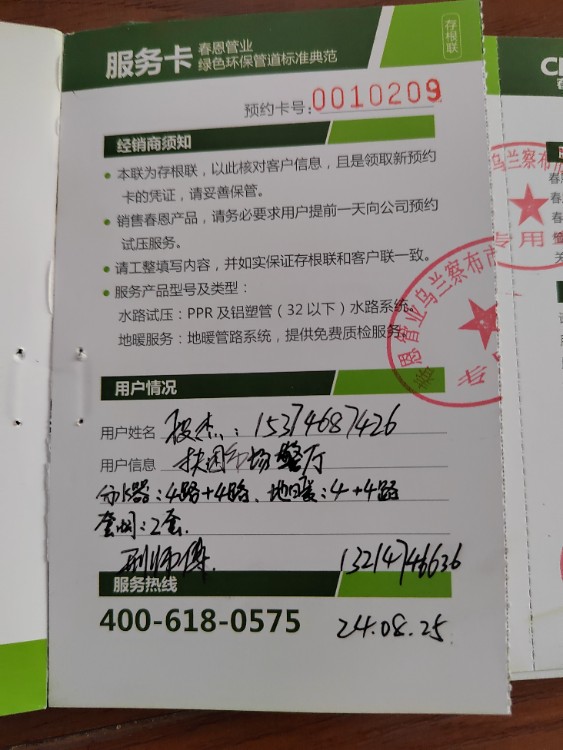 服务卡 春恩管业
绿色环保管道标准典范
存根联
预约卡号: 0010209
经销商须知
• 本联为存根联，以此核对客户信息，且是领取新预约
卡的凭证，请妥善保管。
• 销售春恩产品，请务必要求用户提前一天向公司预约
试压服务。
• 请工整填写内容，并如实保证存根联和客户联一致。
• 服务产品型号及类型：
水路试压：PPR 及铝塑管（32 以下）水路系统。
地暖服务：地暖管路系统，提供免费质检服务。
恩管业乌兰察布市
专用
乌兰察布
专用
用户情况
用户姓名 杰：15374687426
用户信息 扶困市场警厅
分水器：4路+4路、地暖：4+4路
套阀：2套.
师傅. 13214746636
服务热线
400-618-0575 24.08.25